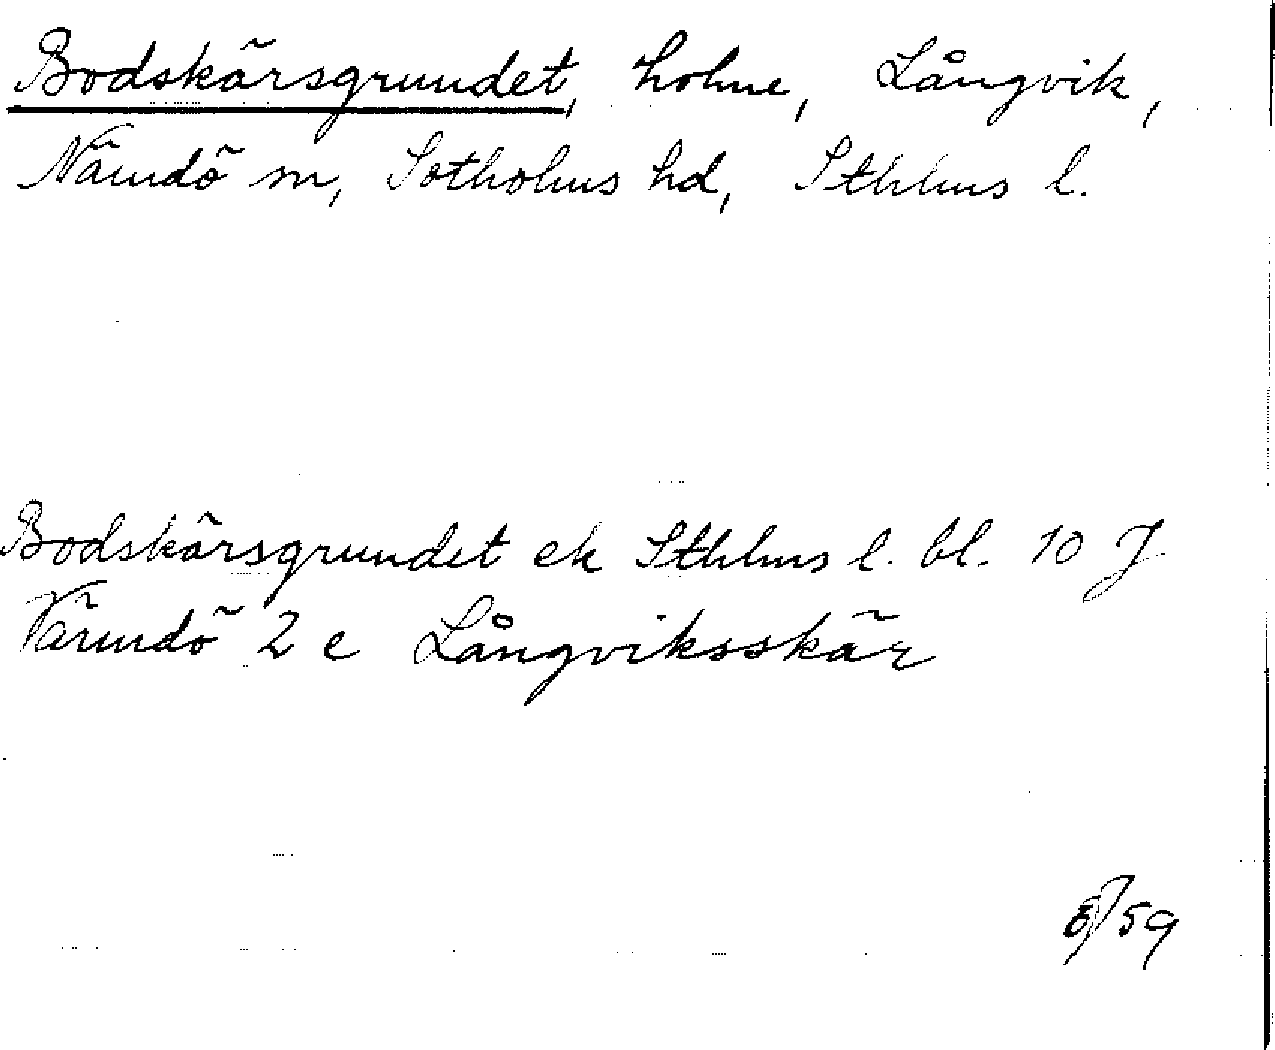 Bodskärsgrundet, holme, Långvik,
Nämdö sn, Sotholms hd, Sthlms l.
Bodskärsgrundet ek Sthlms l. bl. 10 J
Värmdö 2 e Långviksskär
59